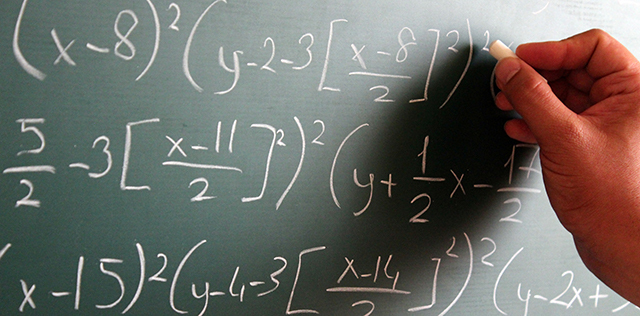 (x-8)²(y-2-3[(x-8)/2]²)²(
5/2-3[(x-11)/2]²)²(y+1/2x-17/2
(x-15)²(y-4-3[(x-14)/2]²)²(y-2x+